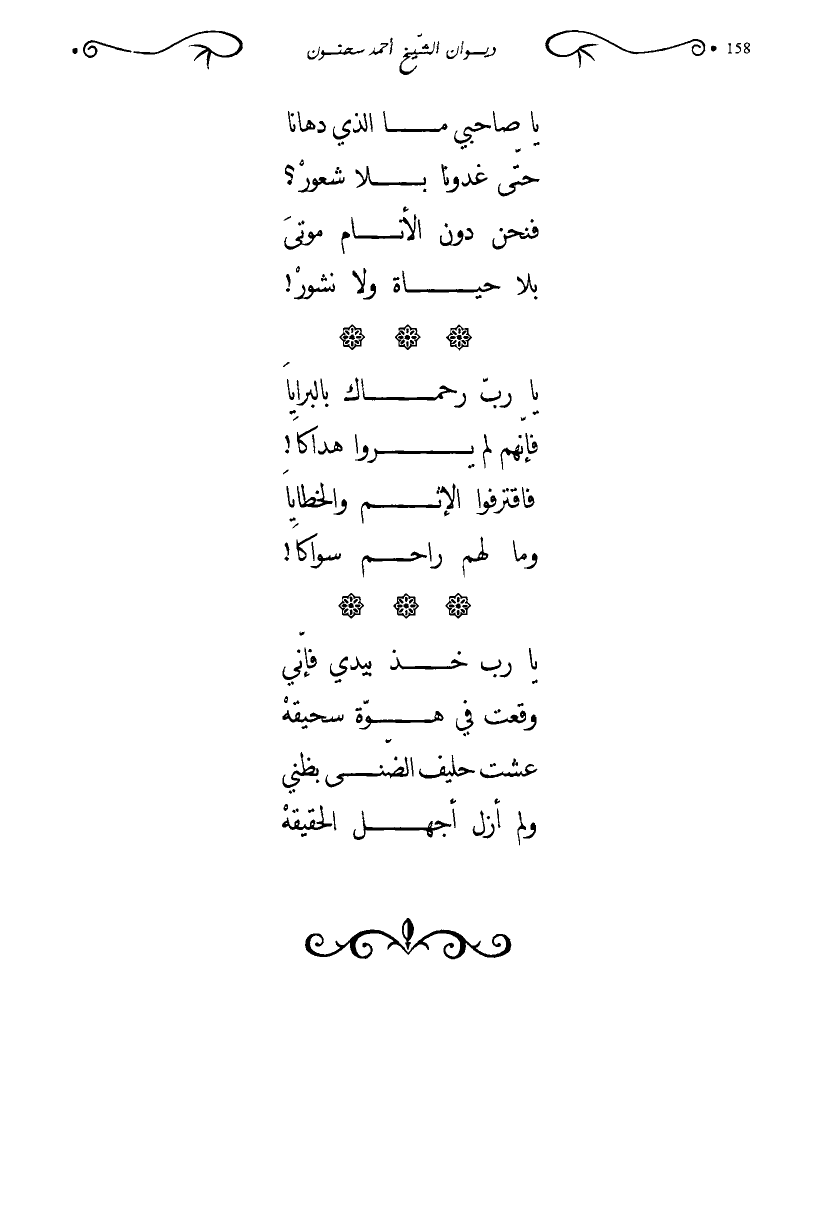 158 ديوان الشّيخ أحمد سحنون
يا صاحبي ما الذي دهانا
حتّى غدونا بلا شعورْ؟
فنحن دون الأنام موتىَ
بلا حياة ولا نشورْ!
يا ربّ رحماك بالبراياَ
فإنّهم لم يروا هداكاَ!
فاقترفوا الإثم والخطاياَ
وما لهم راحم سواكاَ!
يا رب خذ بيدي فإنّي
وقعت في هوّة سحيقهْ
عشت حليف الضّنى بظني
ولم أزل أجهل الحقيقهْ